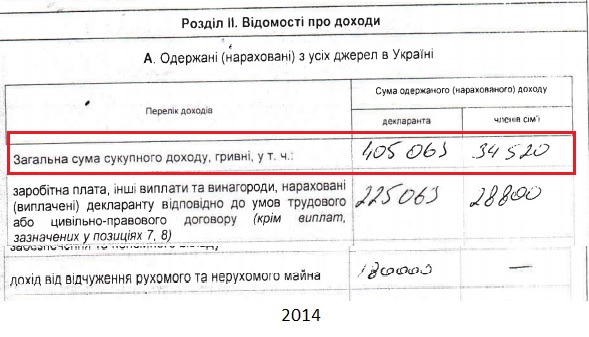 Розділ II. Відомості про доходи
А. Одержані (нараховані) з усіх джерел в Україні
Перелік доходів
Сума одержаного (нарахованого) доходу
декларанта
членів сім'ї
Загальна сума сукупного доходу, гривні, у т. ч.:
405 063
34 520
заробітна плата, інші виплати та винагороди, нараховані
(виплачені) декларанту відповідно до умов трудового
або цивільно-правового договору (крім виплат,
зазначених у позиціях 7, 8)
225063
28800
дохід від відчуження рухомого та нерухомого майна
180000
—
2014